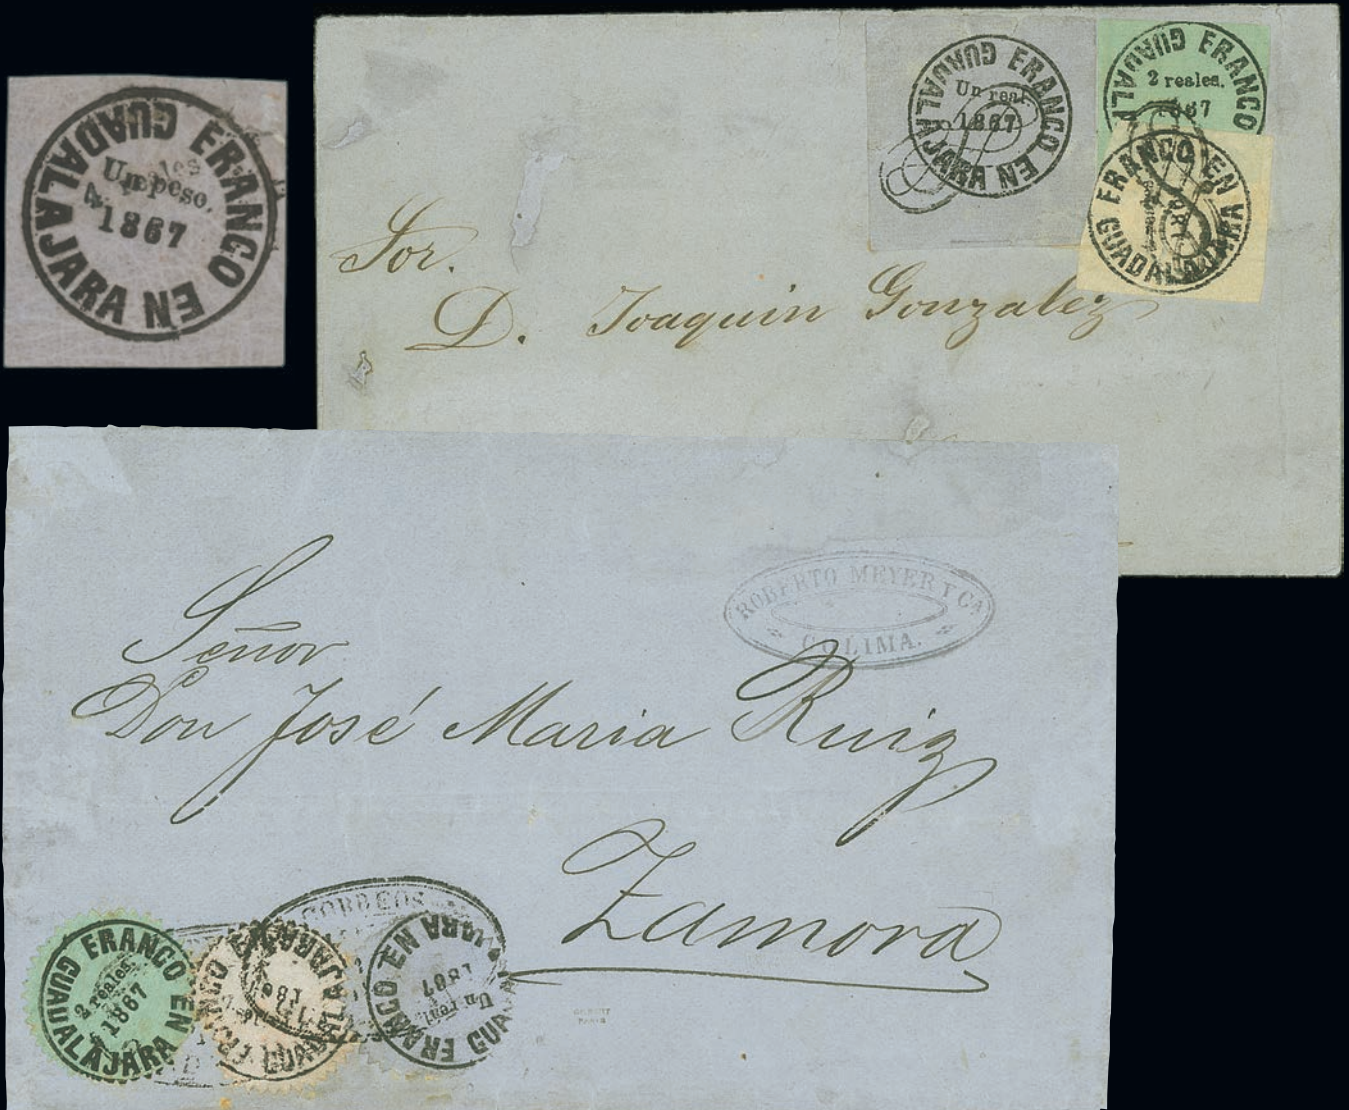 FRANCO EN GUADALAJARA
Un peso.
1867
FRANCO EN GUADALAJARA
Un real.
1867
FRANCO EN GUADALAJARA
2 reales.
1867
FRANCO EN GUADALAJARA
Sor.
D. Joaquin Gonzalez
ROBERTO MEYER Y Ca
COLIMA.
Señor
Don José Maria Ruiz
Zamora
CORREOS
FRANCO EN GUADALAJARA
2 reales.
1867
FRANCO EN GUADALAJARA
1867
FRANCO EN GUADALAJARA
Un real
1867